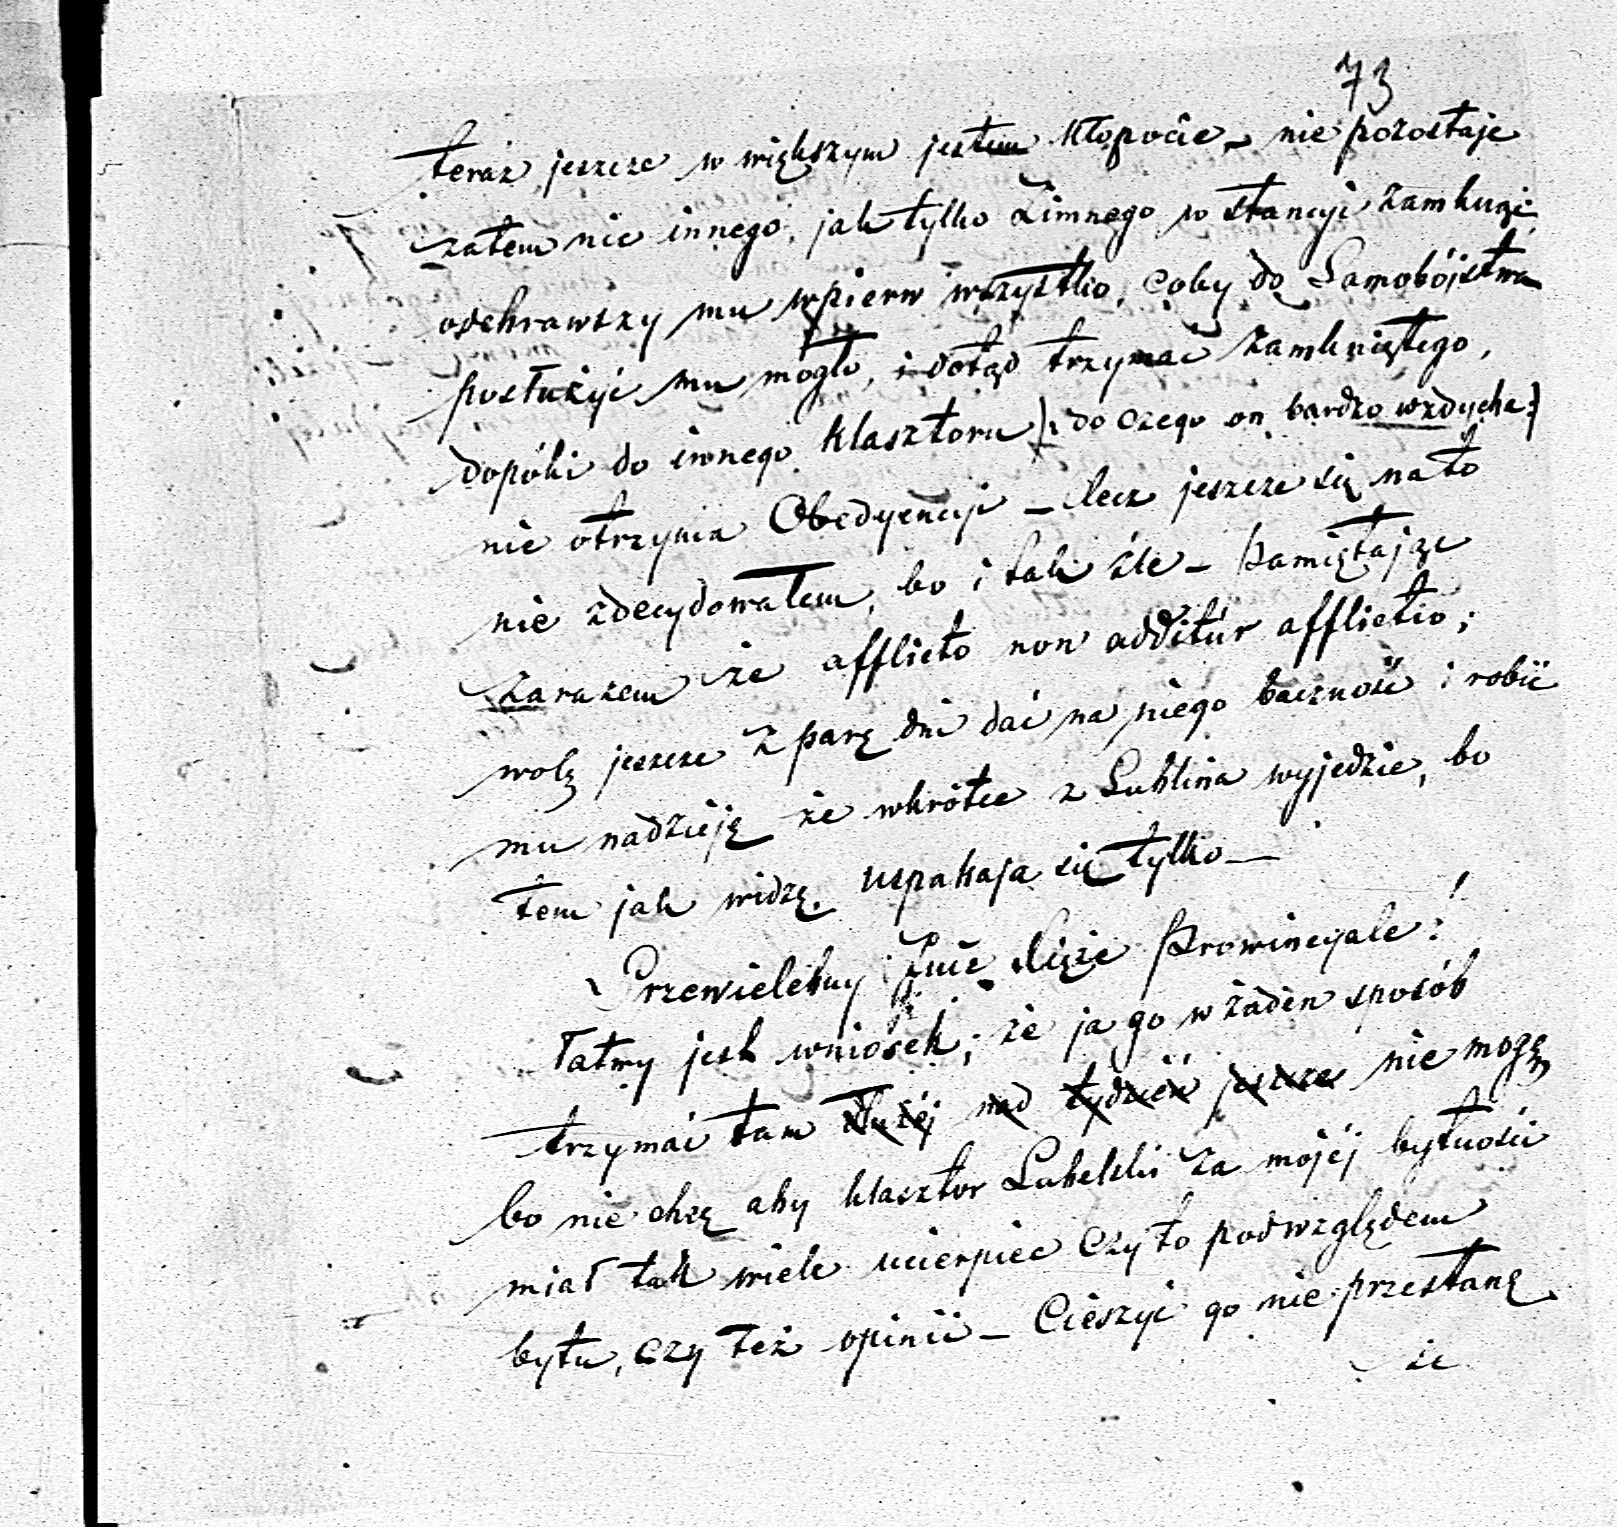 73
teraz jeszcze w większym jestem kłopocie – nie pozostaje
zatem nic innego, jak tylko Zimnego w stancyi zamknąć
odebrawszy mu wpierw wszystko, coby do Samobójstwa
posłużyć mu mogło, i dotąd trzymać zamkniętego,
dopóki do innego klasztoru /: do czego on bardzo wzdycha :/
nie otrzyma Obedyencyi – lecz jeszcze się na to
nie zdecydowałem, bo i tak źle – Pamiętając
zarazem że afflicto non additur afflictio;
wolę jeszcze z parę dni dać na niego baczność i robić
mu nadzieję że wkrótce z Lublina wyjedzie, bo
tem jak widzę, uspakaja się tylko –
Przewielebny Xięże Prowincyale!
łatwy jest wniosek; że ja go w żaden sposób
trzymać tam dłużéj nad tydzień jeszcze nie mogę
bo nie chcę aby klasztor Lubelski za mojéj bytności
miał tak wiele ucierpieć czy to pod względem
bytu, czy też opinii – Cieszyć go nie przestanę
że